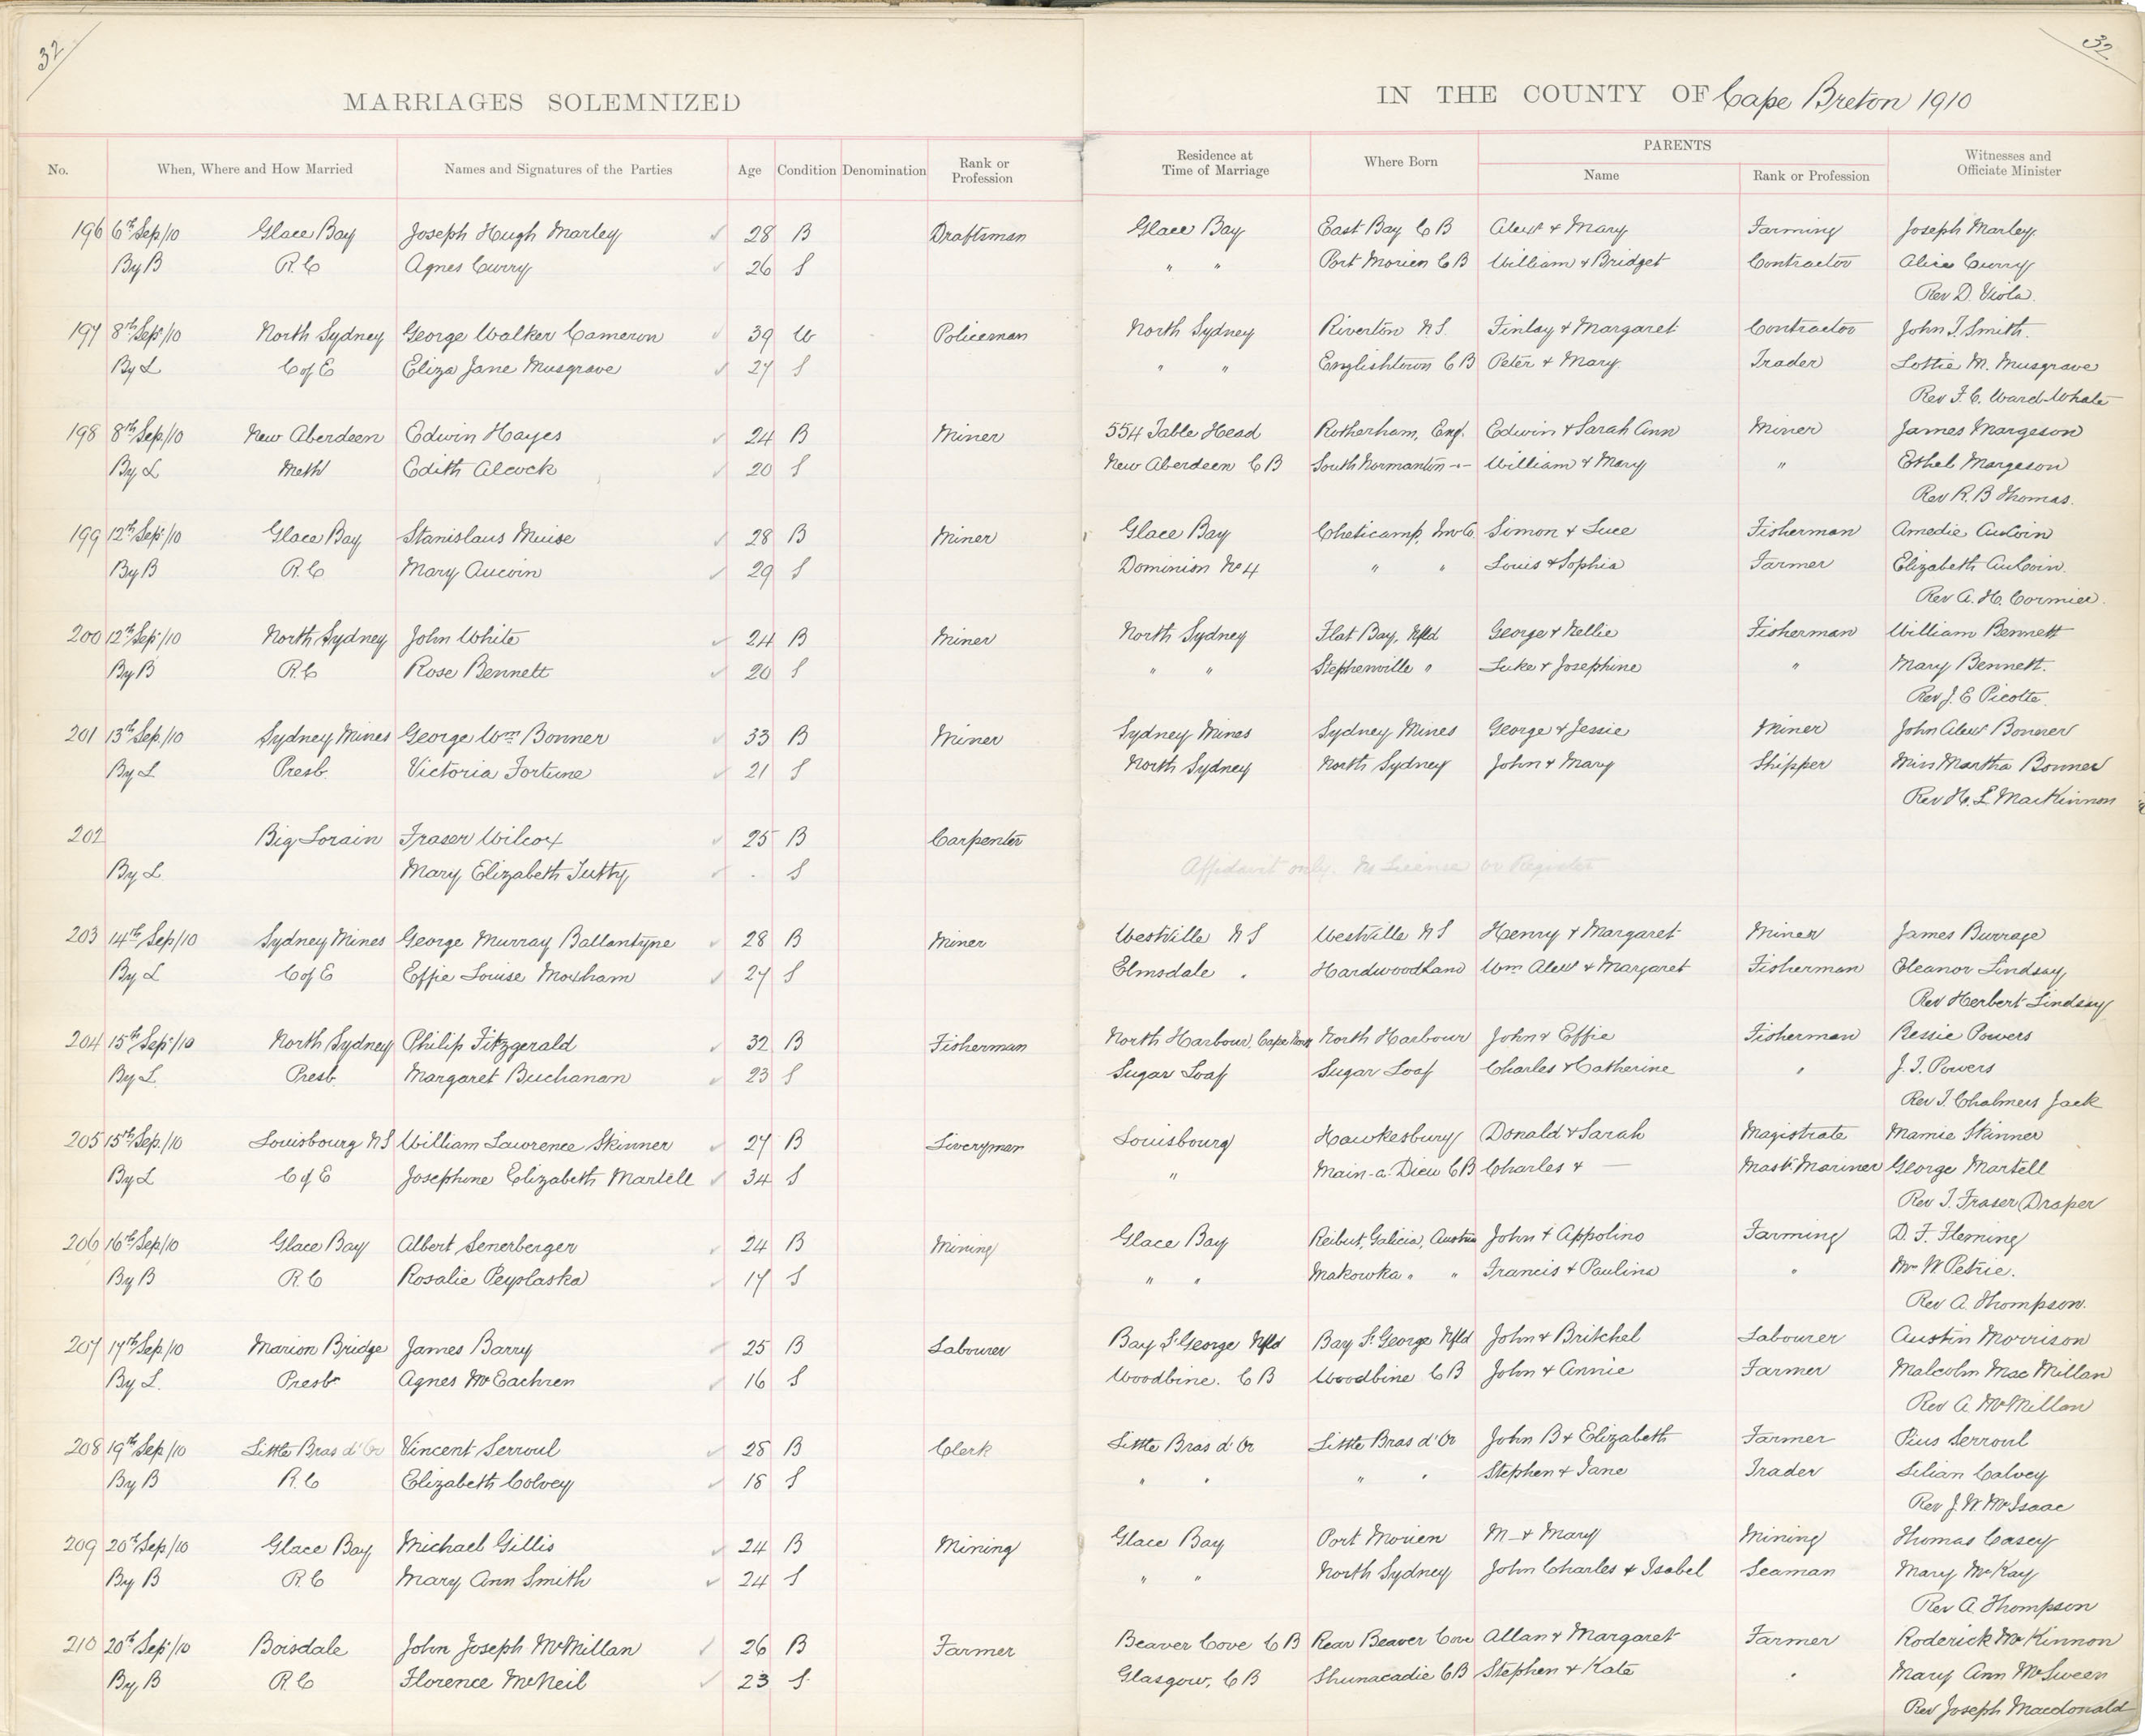 32
32
MARRIAGES SOLEMNIZED IN THE COUNTY OF Cape Breton 1910
No. When, Where and How Married Names and Signatures of the Parties Age Condition Denomination Rank or Profession Residence at Time of Marriage Where Born PARENTS Name Rank or Profession Witnesses and Officiate Minister
196 6th Sep/10 Glace Bay Joseph Hugh Marley 28 B Draftsman Glace Bay East Bay C B Alexr & Mary Farming Joseph Marley
By B R.C Agnes Curry 26 S " " Port Morien C B William & Bridget Contractor Alice Curry
Rev D. Viola.
197 8th Sep/10 North Sydney George Walker Cameron 39 W Policeman North Sydney Riverton N.S. Finlay & Margaret Contractor John T. Smith.
By L C of E Eliza Jane Musgrave 27 S " " Englishtown C B Peter & Mary Trader Lottie M. Musgrave
Rev F. C. Ward-Whate
198 8th Sep/10 New Aberdeen Edwin Hayes 24 B Miner 554 Table Head Rotherham, Eng. Edwin & Sarah Ann Miner James Margeson
By L Meth Edith Alcock 20 S New Aberdeen C B South Normanton -"- William & Mary " Ethel Margeson
Rev R. B Thomas.
199 12th Sep/10 Glace Bay Stanislaus Muise 28 B Miner Glace Bay Cheticamp, Inv Co. Simon & Luce Fisherman Amedie AuCoin
By B R.C Mary Aucoin 29 S Dominion No 4 " " Louis & Sophia Farmer Elizabeth AuCoin.
Rev A. H. Cormier.
200 12th Sep/10 North Sydney John White 24 B Miner North Sydney Flat Bay, Nfld George & Nellie Fisherman William Bennett
By B R.C Rose Bennett 20 S " " Stephenville " Luke & Josephine " Mary Bennett.
Rev J. E Picotte.
201 13th Sep/10 Sydney Mines George Wm Bonner 33 B Miner Sydney Mines Sydney Mines George & Jessie Miner John Alexr Bonner
By L Presb. Victoria Fortune 21 S North Sydney North Sydney John & Mary Shipper Miss Martha Bonner
Rev H. L. MacKinnon
202 Big Lorain Fraser Wilcox 25 B Carpenter
By L. Mary Elizabeth Tutty . S Affidavit only. No Licence or Register
203 14th Sep/10 Sydney Mines George Murray Ballantyne 28 B Miner Westville N S Westville N S Henry & Margaret Miner James Burrage
By L C of E Effie Louise Moxham 27 S Elmsdale " Hardwoodland Wm Alexr & Margaret Fisherman Eleanor Lindsay
Rev Herbert Lindsay
204 15th Sep/10 North Sydney Philip Fitzgerald 32 B Fisherman North Harbour, Cape North North Harbour John & Effie Fisherman Bessie Powers
By L. Presb. Margaret Buchanan 23 S Sugar Loaf Sugar Loaf Charles & Catherine " J. T. Powers
Rev T. Chalmers Jack
205 15th Sep./10 Louisbourg N S William Lawrence Skinner 27 B Liveryman Louisbourg Hawkesbury Donald & Sarah Magistrate Mamie Skinner
By L C of E Josephine Elizabeth Martell 34 S " Main-a-Dieu C B Charles & — Mastr Mariner George Martell
Rev T. Fraser Draper
206 16th Sep/10 Glace Bay Albert Senerberger 24 B Mining Glace Bay Reibut, Galicia, Austria John & Appolino Farming D. F. Fleming
By B R.C Rosalie Peyplaska 17 S " " Makowka " " Francis & Paulina " Mrs W Petrie.
Rev A. Thompson.
207 17th Sep/10 Marion Bridge James Barry 25 B Labourer Bay St George Nfld Bay St George Nfld John & Britchel Labourer Austin Morrison
By L. Presb Agnes McEachren 16 S Woodbine. C B Woodbine C B John & Annie Farmer Malcolm MacMillan
Rev A. McMillan
208 19th Sep/10 Little Bras d'Or Vincent Serroul 25 B Clerk Little Bras d'Or Little Bras d'Or John B & Elizabeth Farmer Pius Serroul
By B R.C Elizabeth Colvey 18 S " " " " Stephen & Jane Trader Lilian Calvey
Rev J. W. McIsaac
209 20th Sep/10 Glace Bay Michael Gillis 24 B Mining Glace Bay Port Morien M— & Mary Mining Thomas Casey
By B R.C Mary Ann Smith 24 S " " North Sydney John Charles & Isabel Seaman Mary McKay
Rev A. Thompson
210 20th Sep/10 Boisdale John Joseph McMillan 26 B Farmer Beaver Cove C B Rear Beaver Cove Allan & Margaret Farmer Roderick McKinnon
By B R.C Florence McNeil 23 S. Glasgow, C B Shunacadie C B Stephen & Kate " Mary Ann McSween
Rev Joseph Macdonald